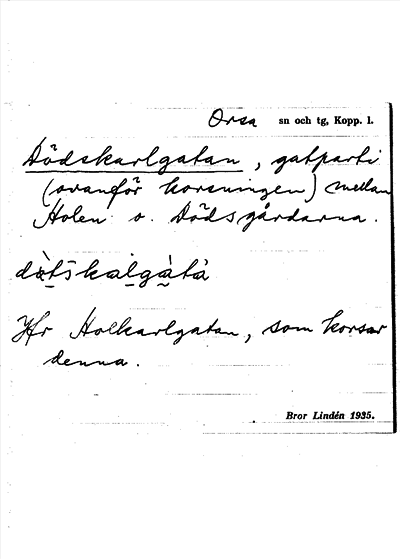 Orsa sn och tg, Kopp. l.
Dödskarlgatan, gatparti
(ovanför korsningen) mellan
Holen o. Dödsgårdarna.
Jfr Holkarlgatan, som korsar
denna.
Bror Lindén 1935.